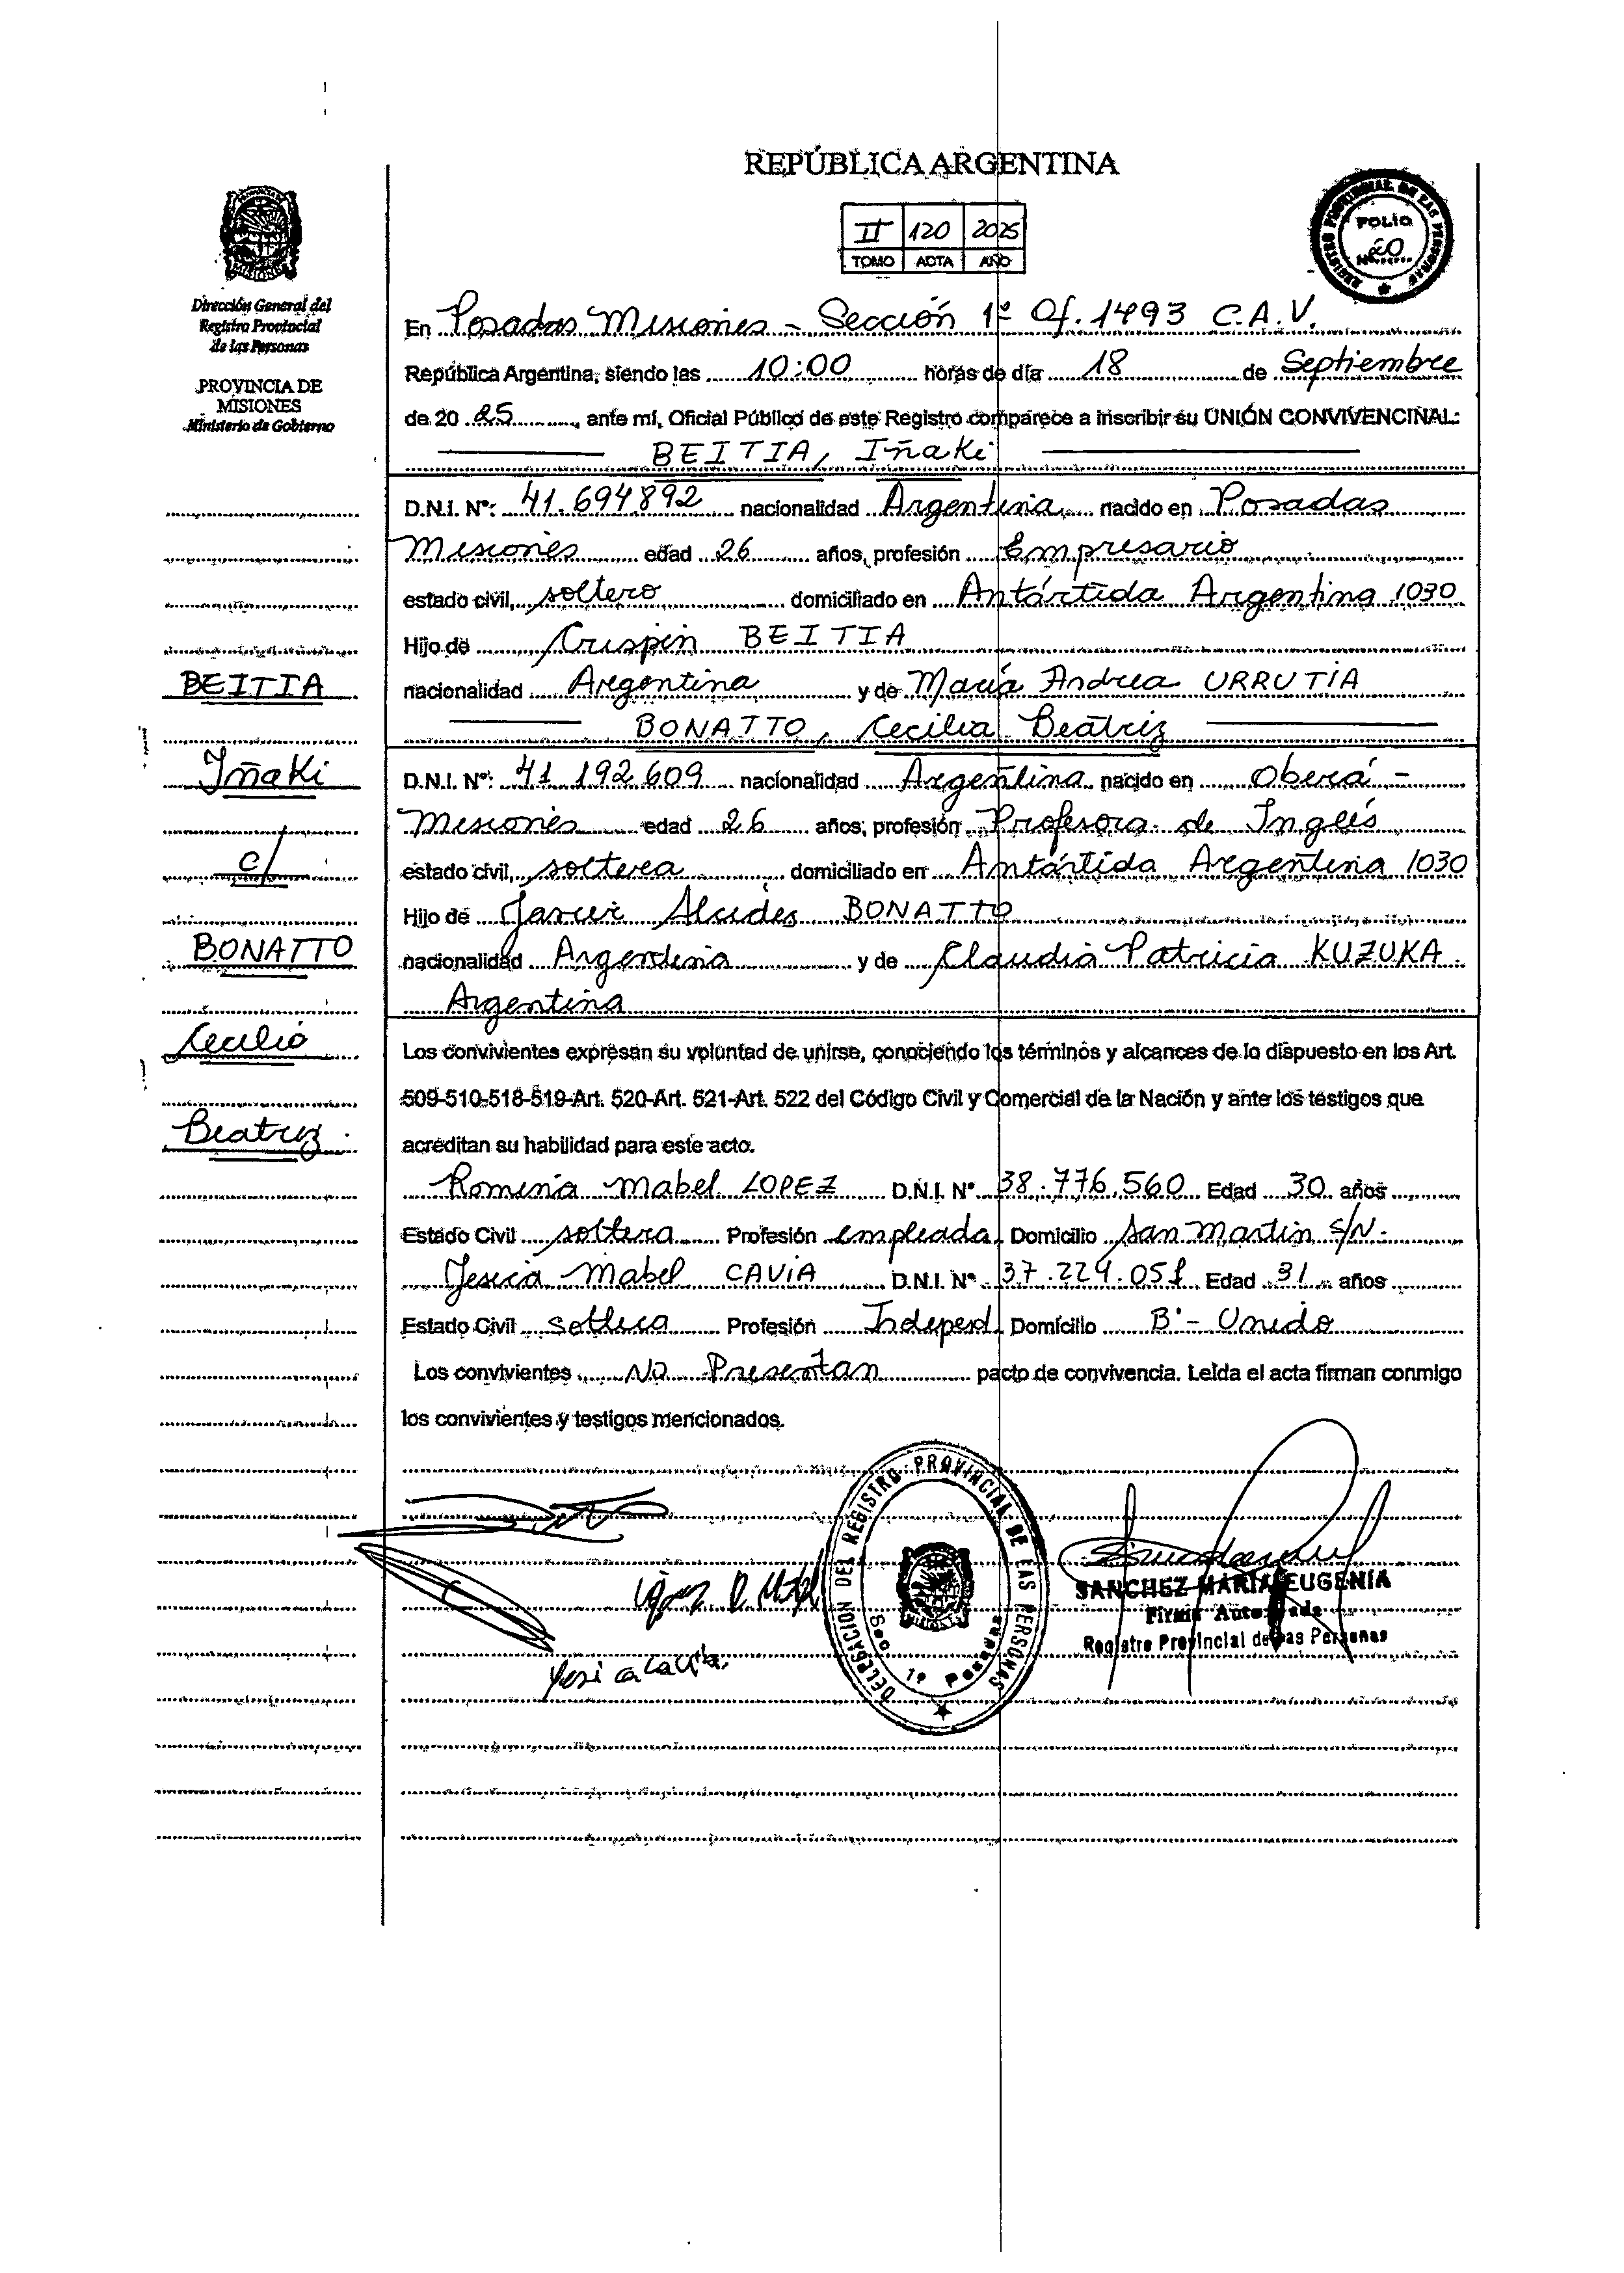 REPÚBLICA ARGENTINA
II 120 2025
TOMO ACTA AÑO
REGISTRO PROVINCIAL DE LAS PERSONAS
FOLIO
Nº 20
PROVINCIA DE
MISIONES
Dirección General del
Registro Provincial
de las Personas
PROVINCIA DE
MISIONES
Ministerio de Gobierno
En Posadas Misiones - Sección 1º Of. 1493 C.A.V.
República Argentina, siendo las 10:00 horas de día 18 de Septiembre
de 20 25, ante mí, Oficial Público de este Registro comparece a inscribir su UNIÓN CONVIVENCINAL:
BEITIA, Iñaki
D.N.I. Nº: 41.694892 nacionalidad Argentina nacido en Posadas
Misiones edad 26 años, profesión Empresario
estado civil, soltero domiciliado en Antártida Argentina 1030
Hijo de Crispin BEITIA
nacionalidad Argentina y de María Andrea URRUTIA
BONATTO, Cecilia Beatriz
D.N.I. Nº: 41 192 609 nacionalidad Argentina nacido en Oberá -
Misiones edad 26 años, profesión Profesora de Inglés
estado civil, soltera domiciliado en Antártida Argentina 1030
Hijo de Javier Alcides BONATTO
nacionalidad Argentina y de Claudia Patricia KUZUKA
Argentina
BEITIA
Iñaki
c/
BONATTO
Cecilia
Beatriz
Los convivientes expresan su voluntad de unirse, conociendo los términos y alcances de lo dispuesto en los Art.
509-510-518-519-Art. 520-Art. 521-Art. 522 del Código Civil y Comercial de la Nación y ante los testigos que
acreditan su habilidad para este acto.
Romina Mabel LOPEZ D.N.I. Nº 38.776.560 Edad 30 años
Estado Civil soltera Profesión empleada Domicilio San Martin S/N.
Jesica Mabel CAVIA D.N.I. Nº 37.229.051 Edad 31 años
Estado Civil soltera Profesión Independ Domicilio Bº - Unido
Los convivientes No Presentan pacto de convivencia. Leída el acta firman conmigo
los convivientes y testigos mencionados.
DELEGACION DEL REGISTRO PROVINCIAL DE LAS PERSONAS
Sec. 1º Posadas
SANCHEZ MARIA EUGENIA
Firma Autorizada
Registro Provincial de las Personas